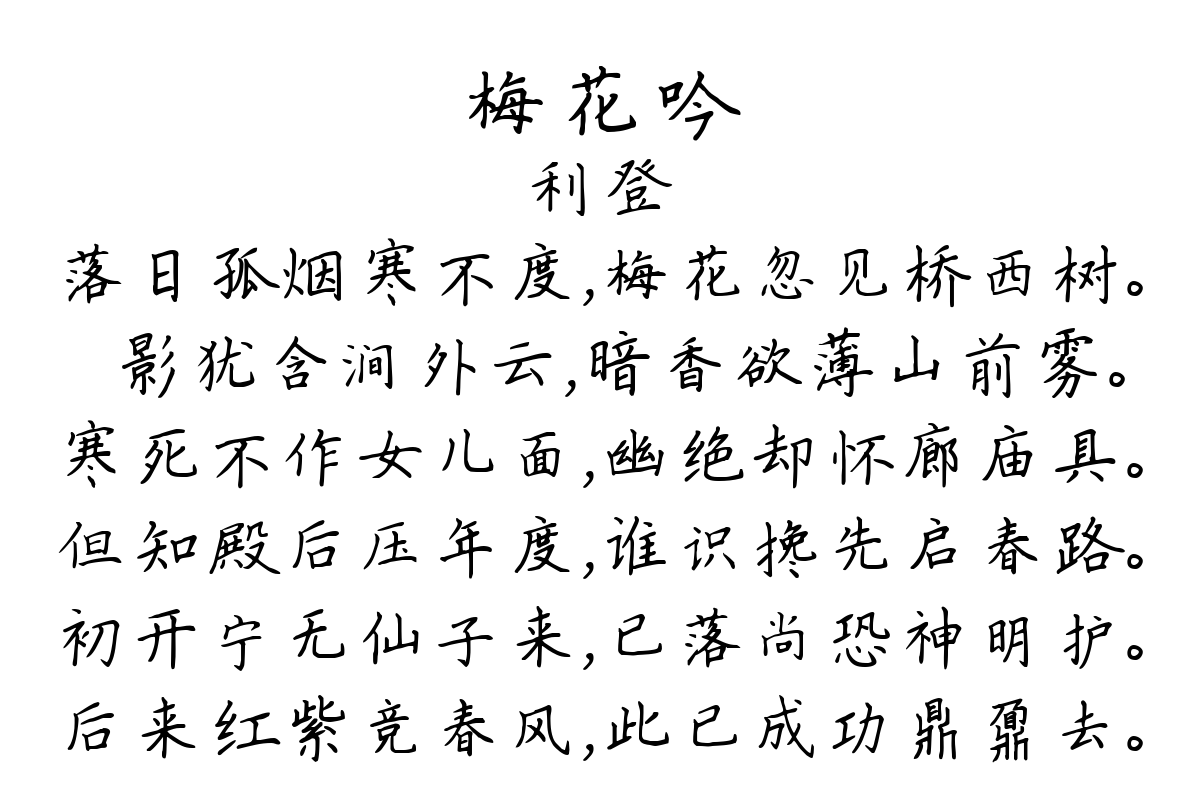 梅花吟
利登
落日孤烟寒不度,梅花忽见桥西树。
影犹含涧外云,暗香欲薄山前雾。
寒死不作女儿面,幽绝却怀廊庙具。
但知殿后压年度,谁识搀先启春路。
初开宁无仙子来,已落尚恐神明护。
后来红紫竞春风,此已成功鼎鼐去。